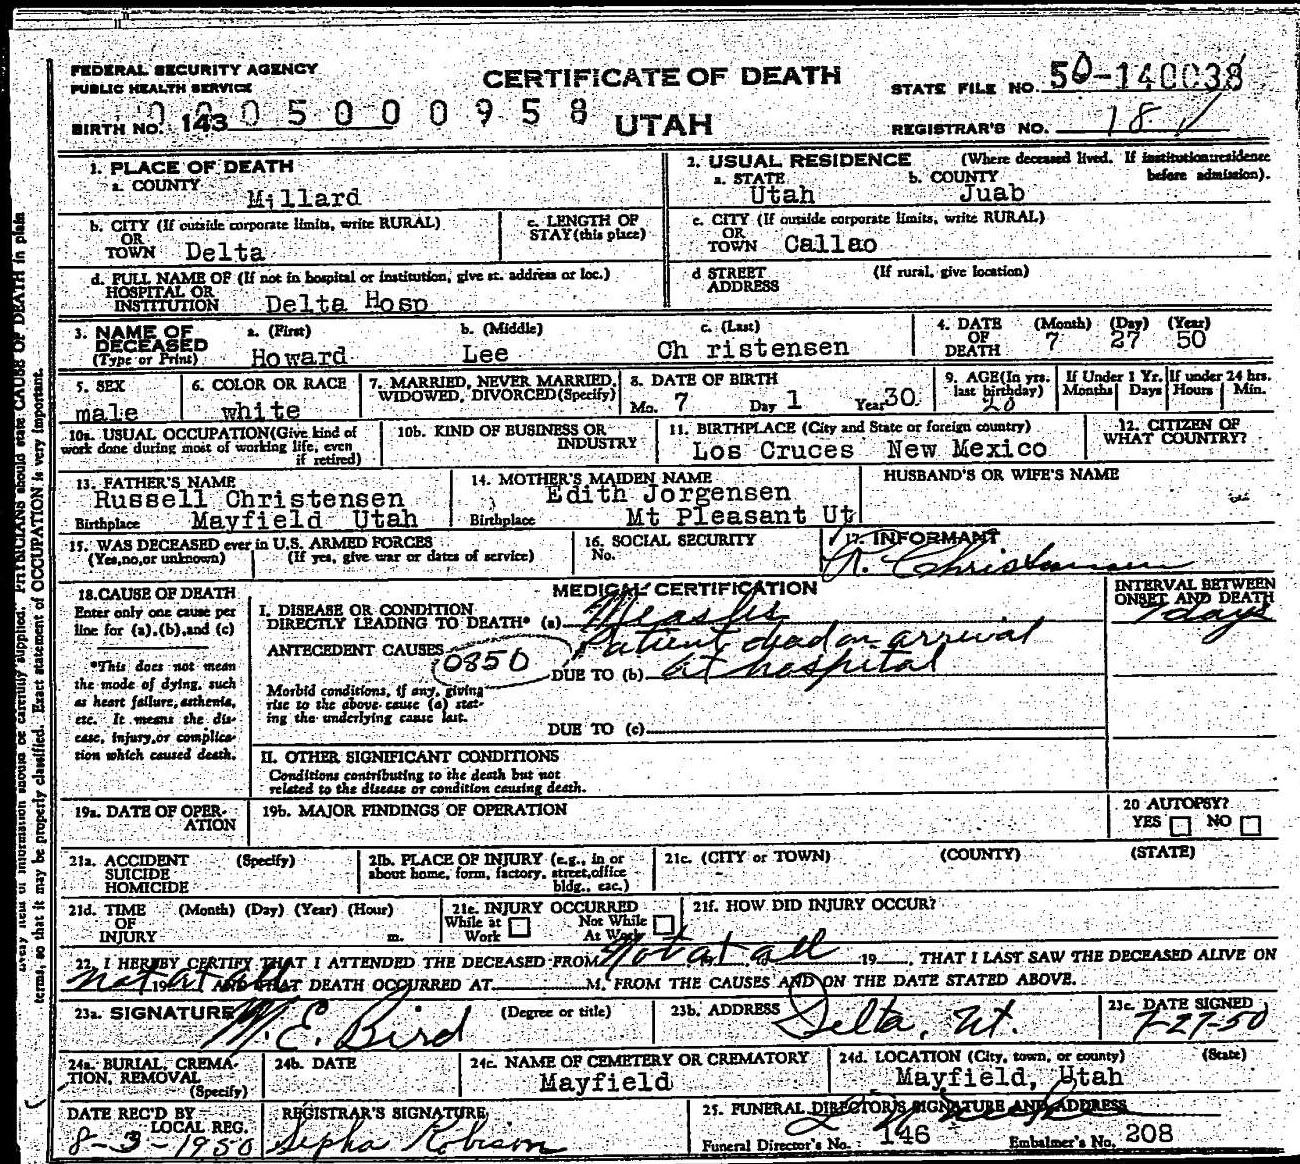 FEDERAL SECURITY AGENCY
PUBLIC HEALTH SERVICE
CERTIFICATE OF DEATH
STATE FILE NO. 50-140038
BIRTH NO. 143 0005000958
UTAH
REGISTRAR'S NO. 18
1. PLACE OF DEATH
a. COUNTY
Millard
2. USUAL RESIDENCE (Where deceased lived. If institution:residence before admission).
a. STATE b. COUNTY
Utah Juab
b. CITY (If outside corporate limits, write RURAL)
OR
TOWN Delta
c. LENGTH OF
STAY (this place)
c. CITY (If outside corporate limits, write RURAL)
OR
TOWN Callao
d. FULL NAME OF (If not in hospital or institution, give st. address or loc.)
HOSPITAL OR
INSTITUTION Delta Hosp
d STREET (If rural, give location)
ADDRESS
3. NAME OF DECEASED (Type or Print)
a. (First) b. (Middle) c. (Last)
Howard Lee Ch ristensen
4. DATE OF DEATH (Month) (Day) (Year)
7 27 50
5. SEX
male
6. COLOR OR RACE
white
7. MARRIED, NEVER MARRIED,
WIDOWED, DIVORCED (Specify)
8. DATE OF BIRTH
Mo. 7 Day 1 Year 30
9. AGE (In yrs. last birthday)
20
If Under 1 Yr. If under 24 hrs.
Months Days Hours Min.
10a. USUAL OCCUPATION (Give kind of
work done during most of working life, even
if retired)
10b. KIND OF BUSINESS OR
INDUSTRY
11. BIRTHPLACE (City and State or foreign country)
Los Cruces New Mexico
12. CITIZEN OF
WHAT COUNTRY?
13. FATHER'S NAME
Russell Christensen
Birthplace Mayfield Utah
14. MOTHER'S MAIDEN NAME
Edith Jorgensen
Birthplace Mt Pleasant Ut
HUSBAND'S OR WIFE'S NAME
15. WAS DECEASED ever in U.S. ARMED FORCES
(Yes, no, or unknown) (If yes, give war or dates of service)
16. SOCIAL SECURITY
No.
17. INFORMANT
R. Christensen
MEDICAL CERTIFICATION
18. CAUSE OF DEATH
Enter only one cause per
line for (a), (b), and (c)
*This does not mean
the mode of dying, such
as heart failure, asthenia,
etc. It means the dis-
ease, injury, or complica-
tion which caused death.
I. DISEASE OR CONDITION
DIRECTLY LEADING TO DEATH* (a) Measles
INTERVAL BETWEEN
ONSET AND DEATH
7 days
ANTECEDENT CAUSES
0850
Patient dead on arrival
DUE TO (b) at hospital
Morbid conditions, if any, giving
rise to the above cause (a) stat-
ing the underlying cause last.
DUE TO (c)
II. OTHER SIGNIFICANT CONDITIONS
Conditions contributing to the death but not
related to the disease or condition causing death.
19a. DATE OF OPER-
ATION
19b. MAJOR FINDINGS OF OPERATION
20 AUTOPSY?
YES NO
21a. ACCIDENT (Specify)
SUICIDE
HOMICIDE
21b. PLACE OF INJURY (e.g., in or
about home, form, factory, street, office
bldg., eac.)
21c. (CITY or TOWN) (COUNTY) (STATE)
21d. TIME (Month) (Day) (Year) (Hour)
OF
INJURY m.
21e. INJURY OCCURRED
While at Work Not While At Work
21f. HOW DID INJURY OCCUR?
22. I HEREBY CERTIFY THAT I ATTENDED THE DECEASED FROM Not at all 19 , THAT I LAST SAW THE DECEASED ALIVE ON
not at all 19 AND THAT DEATH OCCURRED AT M. FROM THE CAUSES AND ON THE DATE STATED ABOVE.
23a. SIGNATURE (Degree or title)
M. E. Bird
23b. ADDRESS
Delta, Ut.
23c. DATE SIGNED
7-27-50
24a. BURIAL, CREMA-
TION, REMOVAL
(Specify)
24b. DATE
24c. NAME OF CEMETERY OR CREMATORY
Mayfield
24d. LOCATION (City, town, or county) (State)
Mayfield, Utah
DATE REC'D BY
LOCAL REG.
8-3-1950
REGISTRAR'S SIGNATURE
Sepha Robison
25. FUNERAL DIRECTOR'S SIGNATURE AND ADDRESS
Funeral Director's No. 146 Embalmer's No. 208